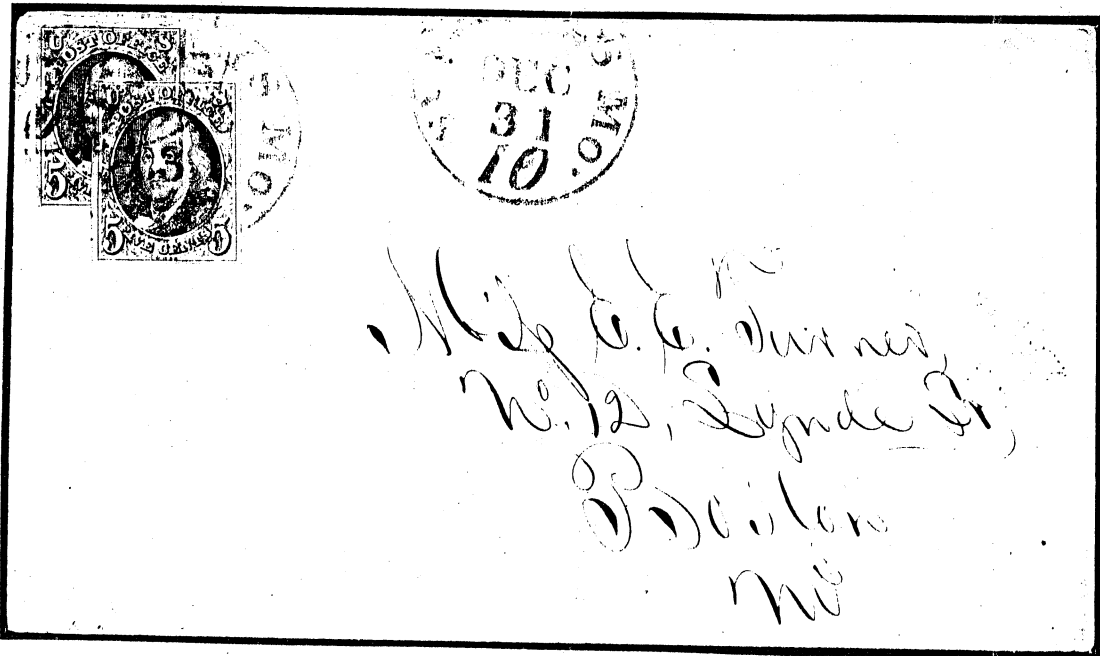 U POST OFFICE S
POST OFFICE
5
5 FIVE CENTS 5
Mo.
S Mo.
DEC
31
10
Miss E. E. Turner,
No. 12, Lynde St,
Boston
Ms